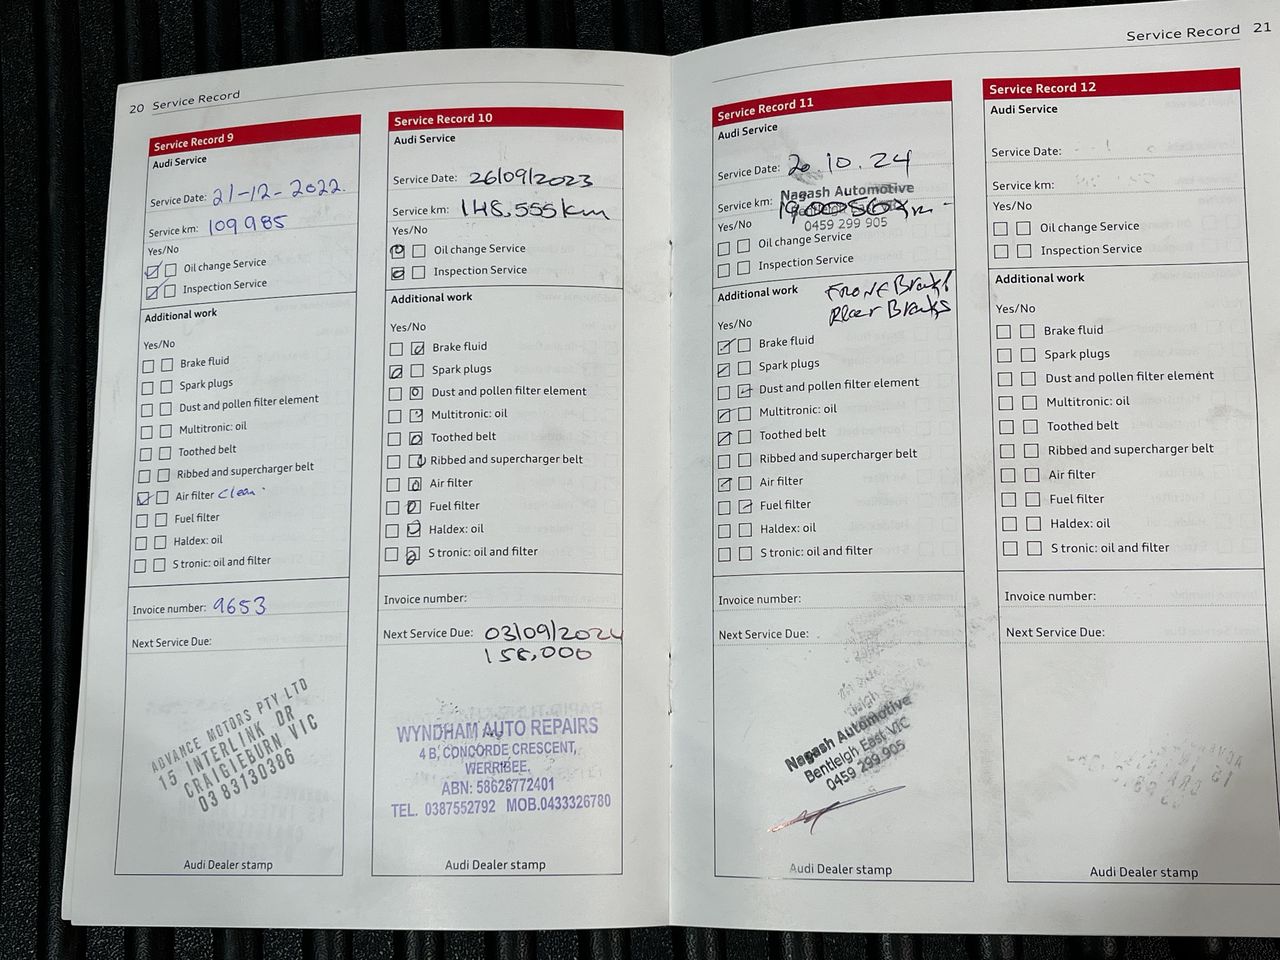 20 Service Record
Service Record 9
Audi Service
Service Date: 21-12-2022.
Service km: 109985
Yes/No
Oil change Service
Inspection Service
Additional work
Yes/No
Brake fluid
Spark plugs
Dust and pollen filter element
Multitronic: oil
Toothed belt
Ribbed and supercharger belt
Air filter Clean.
Fuel filter
Haldex: oil
S tronic: oil and filter
Invoice number: 9653
Next Service Due:
ADVANCE MOTORS PTY LTD
15 INTERLINK DR
CRAIGIEBURN VIC
03 83130386
Audi Dealer stamp
Service Record 10
Audi Service
Service Date: 26/09/2023
Service km: 148,555km
Yes/No
Oil change Service
Inspection Service
Additional work
Yes/No
Brake fluid
Spark plugs
Dust and pollen filter element
Multitronic: oil
Toothed belt
Ribbed and supercharger belt
Air filter
Fuel filter
Haldex: oil
S tronic: oil and filter
Invoice number:
Next Service Due: 03/09/2024
WYNDHAM AUTO REPAIRS
4 B, CONCORDE CRESCENT,
WERRIBEE.
ABN: 58626772401
TEL. 0387552792 MOB.0433326780
Audi Dealer stamp
Service Record 21
Service Record 11
Audi Service
Service Date: 20.10.24
Nagash Automotive
Service km:
0459 299 905
Yes/No
Oil change Service
Inspection Service
Additional work
Rear Brakes
Yes/No
Brake fluid
Spark plugs
Dust and pollen filter element
Multitronic: oil
Toothed belt
Ribbed and supercharger belt
Air filter
Fuel filter
Haldex: oil
S tronic: oil and filter
Invoice number:
Next Service Due:
Nagash Automotive
Bentleigh East VIC
0459 299 905
Audi Dealer stamp
Service Record 12
Audi Service
Service Date:
Service km:
Yes/No
Oil change Service
Inspection Service
Additional work
Yes/No
Brake fluid
Spark plugs
Dust and pollen filter element
Multitronic: oil
Toothed belt
Ribbed and supercharger belt
Air filter
Fuel filter
Haldex: oil
S tronic: oil and filter
Invoice number:
Next Service Due:
Audi Dealer stamp